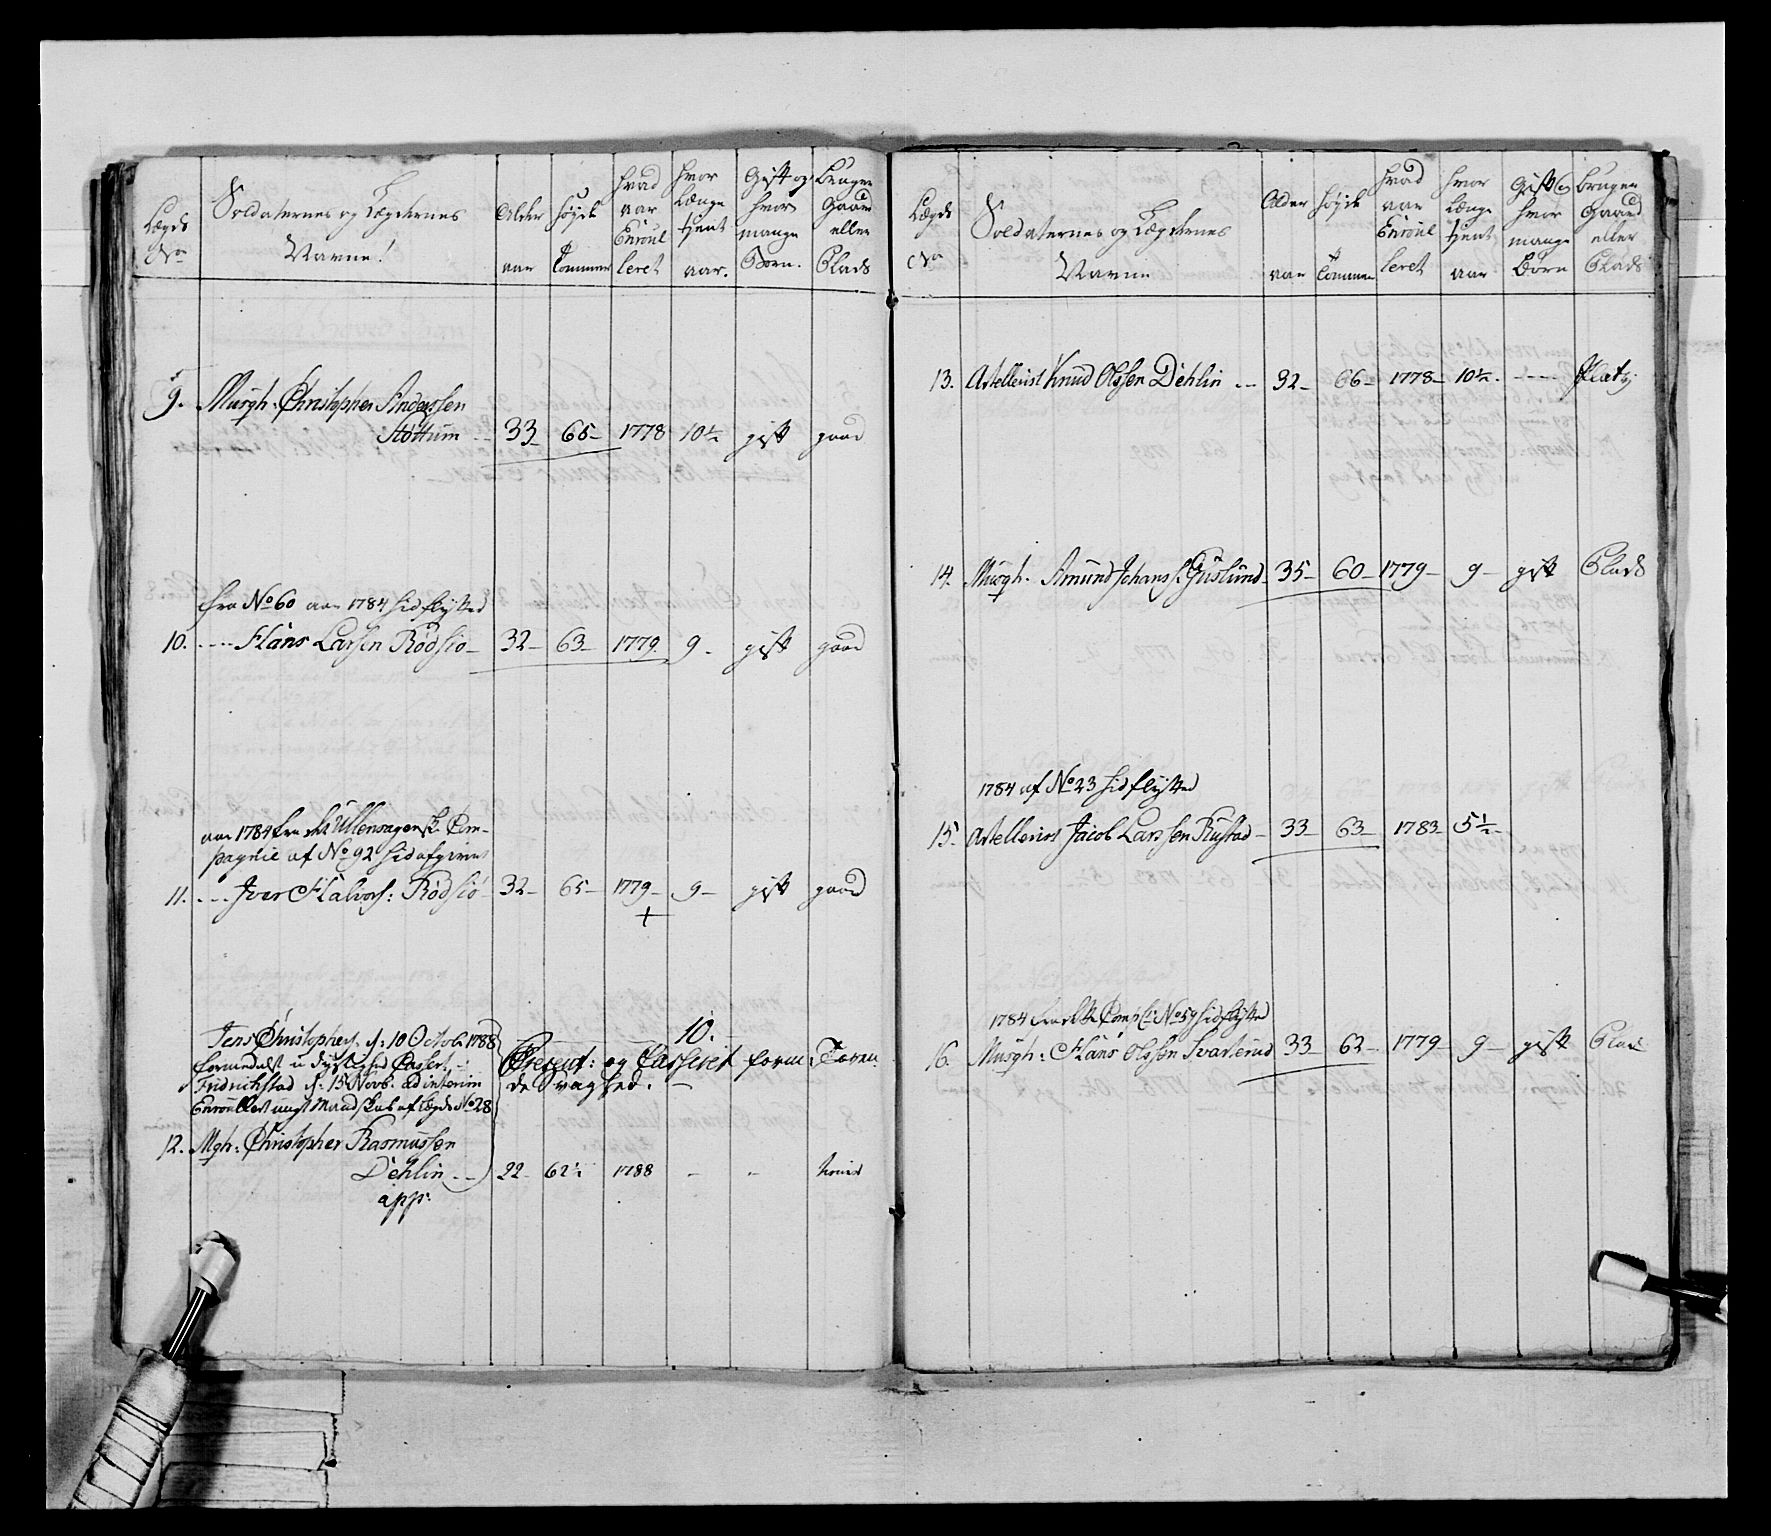 Lægds No
Soldaternes og Lægdernes Navne
Alder aar
Høyde Tommer
hvad aar Enroulleret
hvor længe tient aar.
Gift og hvor mange Børn.
bruger Gaard eller Plads
9. Musqt. Christopher Anderssen
Støttum -- 33 - 65 - 1778 10½ gift gaard
fra No 60 aar 1784 hidflytted
10. ---- Hans Larsen Rødsio - 32 - 63 - 1779. 9 - gift gaard
aar 1784 fra Ullensagersk. Com-
pagnie af No 92 hid afgivet
11. --- Iver Halvors: Rødsiö - 32 - 65 - 1779 - 9 - gift gaard
+
Jens Christophers. d: 10 Octobr 1788
formedelst udyglighed Casert
Fridrichstad d: 15 Novb. ad interim
Enroullert ungt Mandskab af Lægds No 28
10.
Present: og Casseret formedelst
svaghed. -
12. Mqh: Christopher Rasmussen
Dehlin -- 22 - 62½ 1788 - -
app:
Lægds No
Soldaternes og Lægdernes Navne
Alder aar
høyde Tommer
hvad aar Enroulleret
hvor længe tient aar
Gift og hvor mange Børn
bruger Gaard eller Plads
13. Artellerist Knud Olssen Dehlin -- 32 - 66 - 1778 - 10½ - ---- Platz
14. Musqh. Amund Johanss. Guslund - 35 - 60 - 1779 - 9 - gift Plads
1784 af No 23 hidflytted
15. Artellerist Jacob Larssen Rustad - 33 - 63 - 1783 - 5½ -
1784 fra dette Comp: No 59 hidflytted
16. Musqh: Hans Olssen Svarterud 33 - 62 - 1779 - 9 - gift Plads